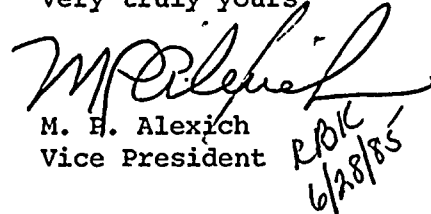 Very truly yours
MPAlexich
M. P. Alexich
Vice President
RBK
6/28/85